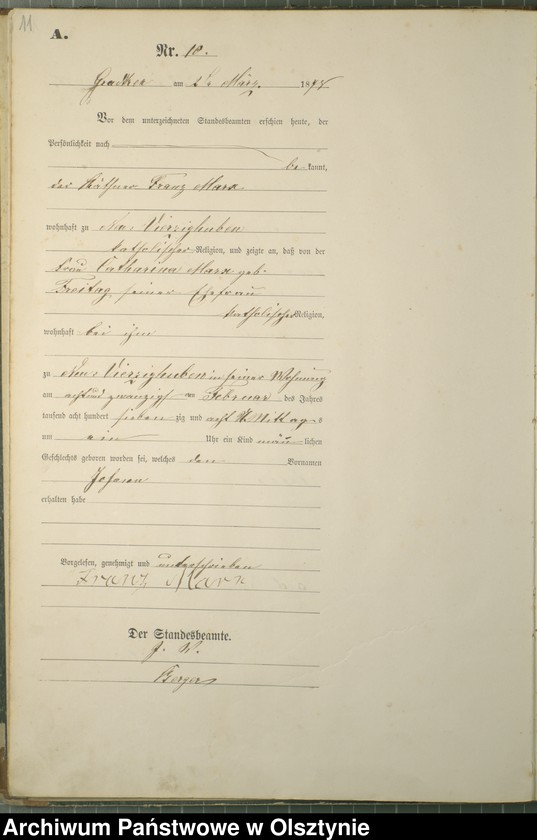 11
A.
Nr. 10.
am März. 18
Vor dem unterzeichneten Standesbeamten erschien heute, der
Persönlichkeit nach
be kannt,
der Käthner Franz Marx
wohnhaft zu Neu Vierzighuben
katholischer Religion, und zeigte an, daß von der
Frau Catharina Marx geb.
Freitag seiner Ehefrau
katholischer Religion,
wohnhaft bei ihm
zu Neu Vierzighuben in seiner Wohnung
am acht und zwanzigsten Februar des Jahres
tausend acht hundert sieben zig und acht Mittags
um ein Uhr ein Kind männ lichen
Geschlechts geboren worden sei, welches den Vornamen
Johann
erhalten habe
Vorgelesen, genehmigt und unterschrieben
Franz Marx
Der Standesbeamte.
J. V.
Archiwum Państwowe w Olsztynie